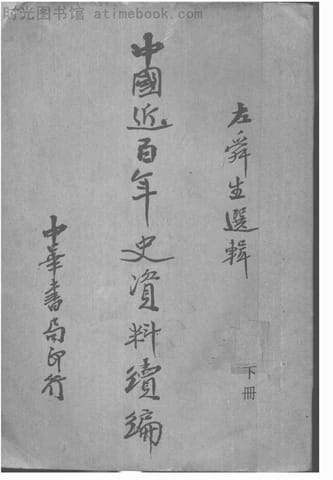 时光图书馆 - atimebook.com
左舜生選輯
下冊
中國近百年史資料續編
中華書局印行